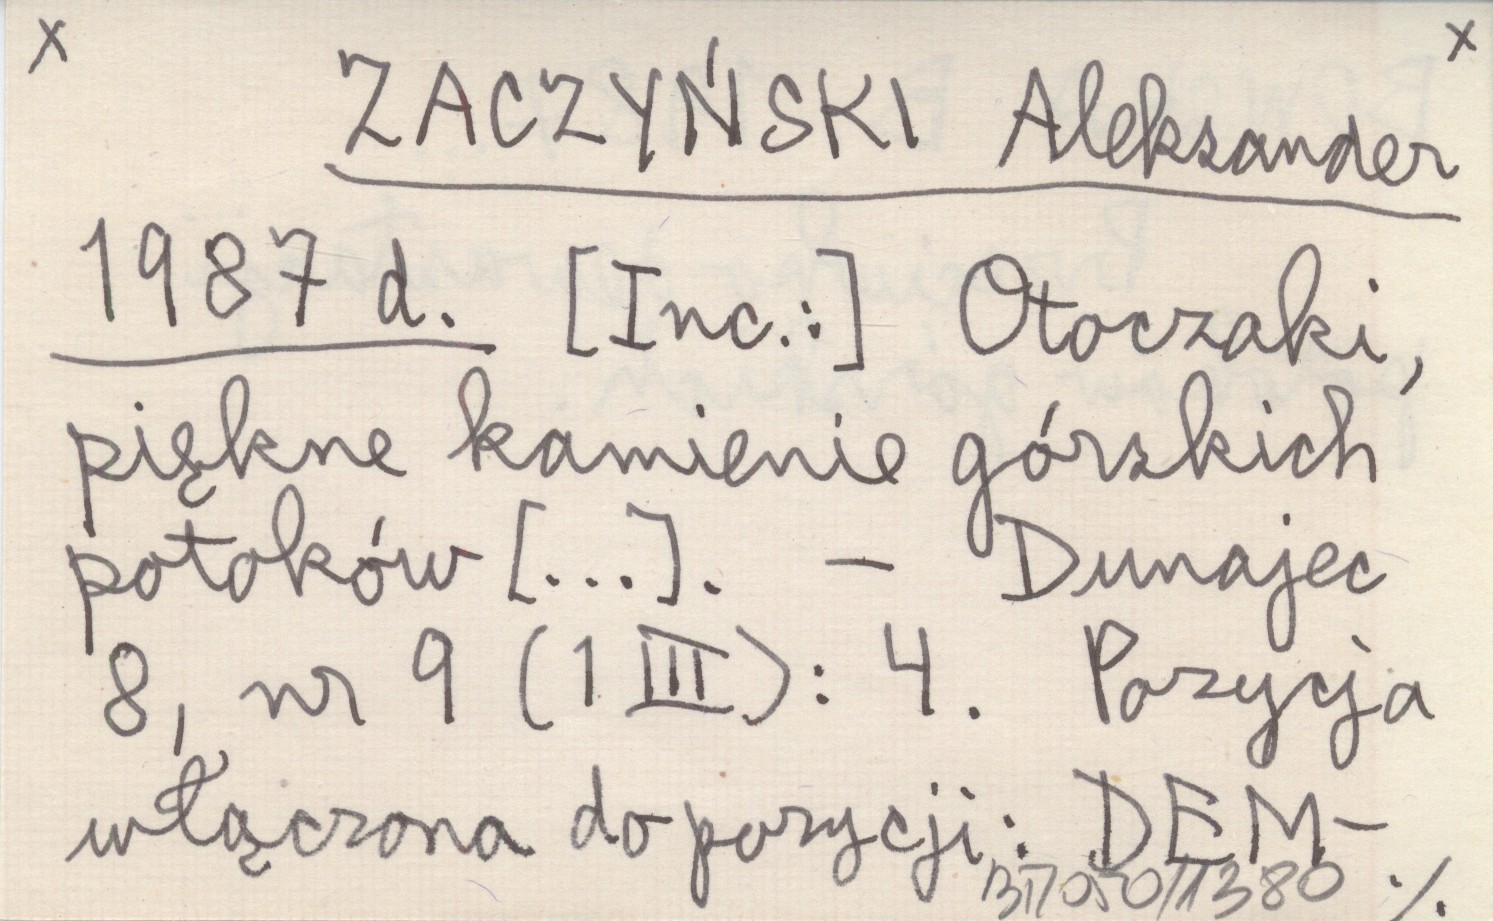 x x
ZACZYŃSKI Aleksander
1987 d. [Inc.:] Otoczaki,
piękne kamienie górskich
potoków [...]. – Dunajec
8, nr 9 (1 III): 4. Pozycja
włączona do pozycji: DEM-
./.